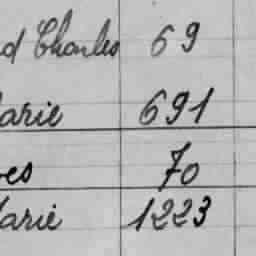 d Charles 69
arie 691
es 70
arie 1223